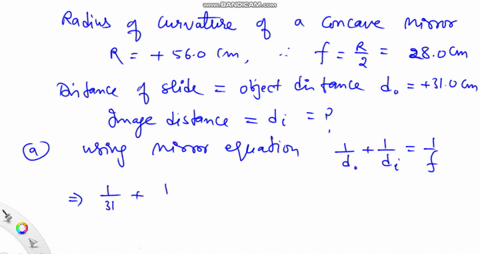 WWW.BANDICAM.COM
Radius of curvature of a concave mirror
R = + 56.0 cm, ∴ f = R/2 = 28.0 cm
Distance of slide = object distance d₀ = +31.0 cm
Image distance = dᵢ = ?
ⓐ using mirror equation 1/d₀ + 1/dᵢ = 1/f
⇒ 1/31 + 1